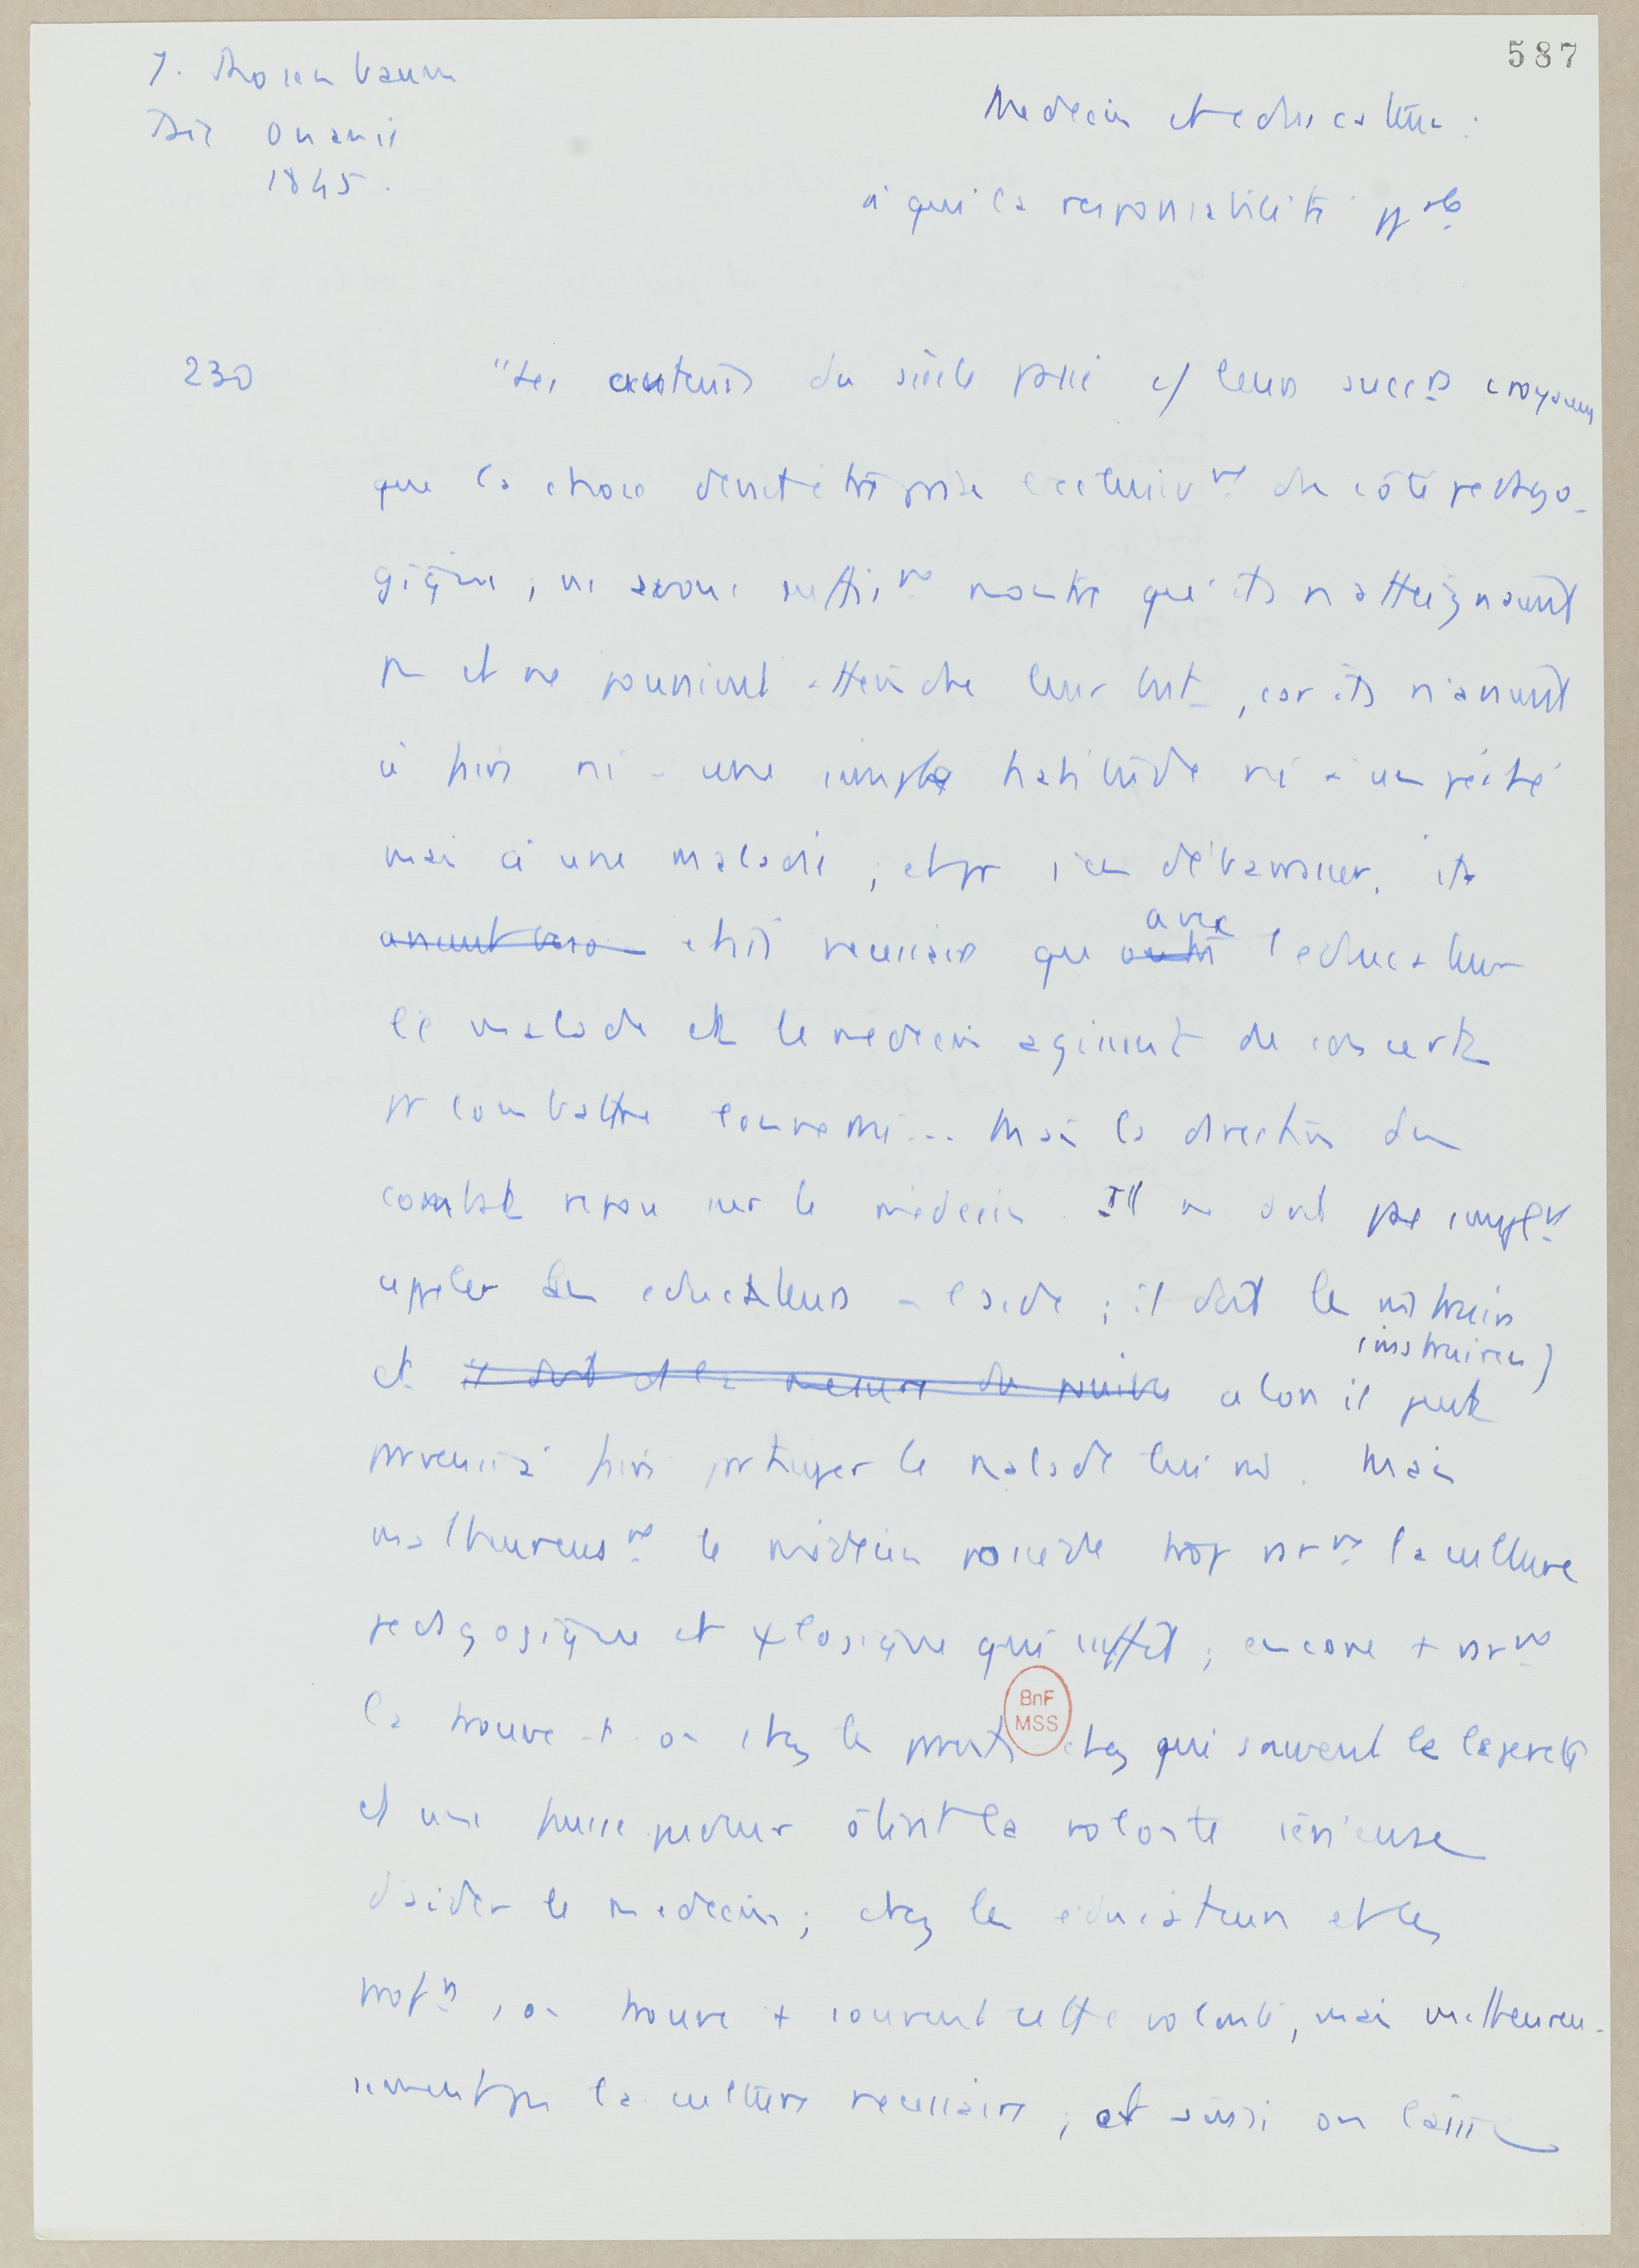 587
J. Rosenbaum
Die Onanie
1845.
Medecin et educateur :
à qui la responsabilité ppale
230 "Les auteurs du siècle passé et leurs succrs croyaient
que la chose devait être prise exclusivmt du côté pedago-
gique ; ns avons suffist montré qu'ils n'atteignaient
pas et ne pouvaient atteindre leur but, car ils n'avaient
à faire ni à une simple habitude ni à un péché
mais à une maladie ; et pr s'en débarrasser, ils
etait necessaire que avec l'educateur
le malade et le medecin agissent de concert
pr combattre l'ennemi... Mais la direction du
combat repose sur le médecin. Il ne doit pas simplt
appeler les educateurs à l'aide ; il doit les instruire
(instruire)
et il doit et la mesure du alors il peut
parvenir à faire partager le malade lui mê. Mais
malheureust le médecin possede trop rart la culture
pedagogique et ψlogique qui suffit ; encore + rart
la trouve-t-on chez les parents
BnF
MSS
chez qui souvent la legereté
et une fausse pudeur ôtent la volonté sérieuse
d'aider le medecin ; chez les educateurs et les
profrs, on trouve + souvent cette volonté, mais malheureu-
sement pas la culture necessaire ; et ainsi on laisse